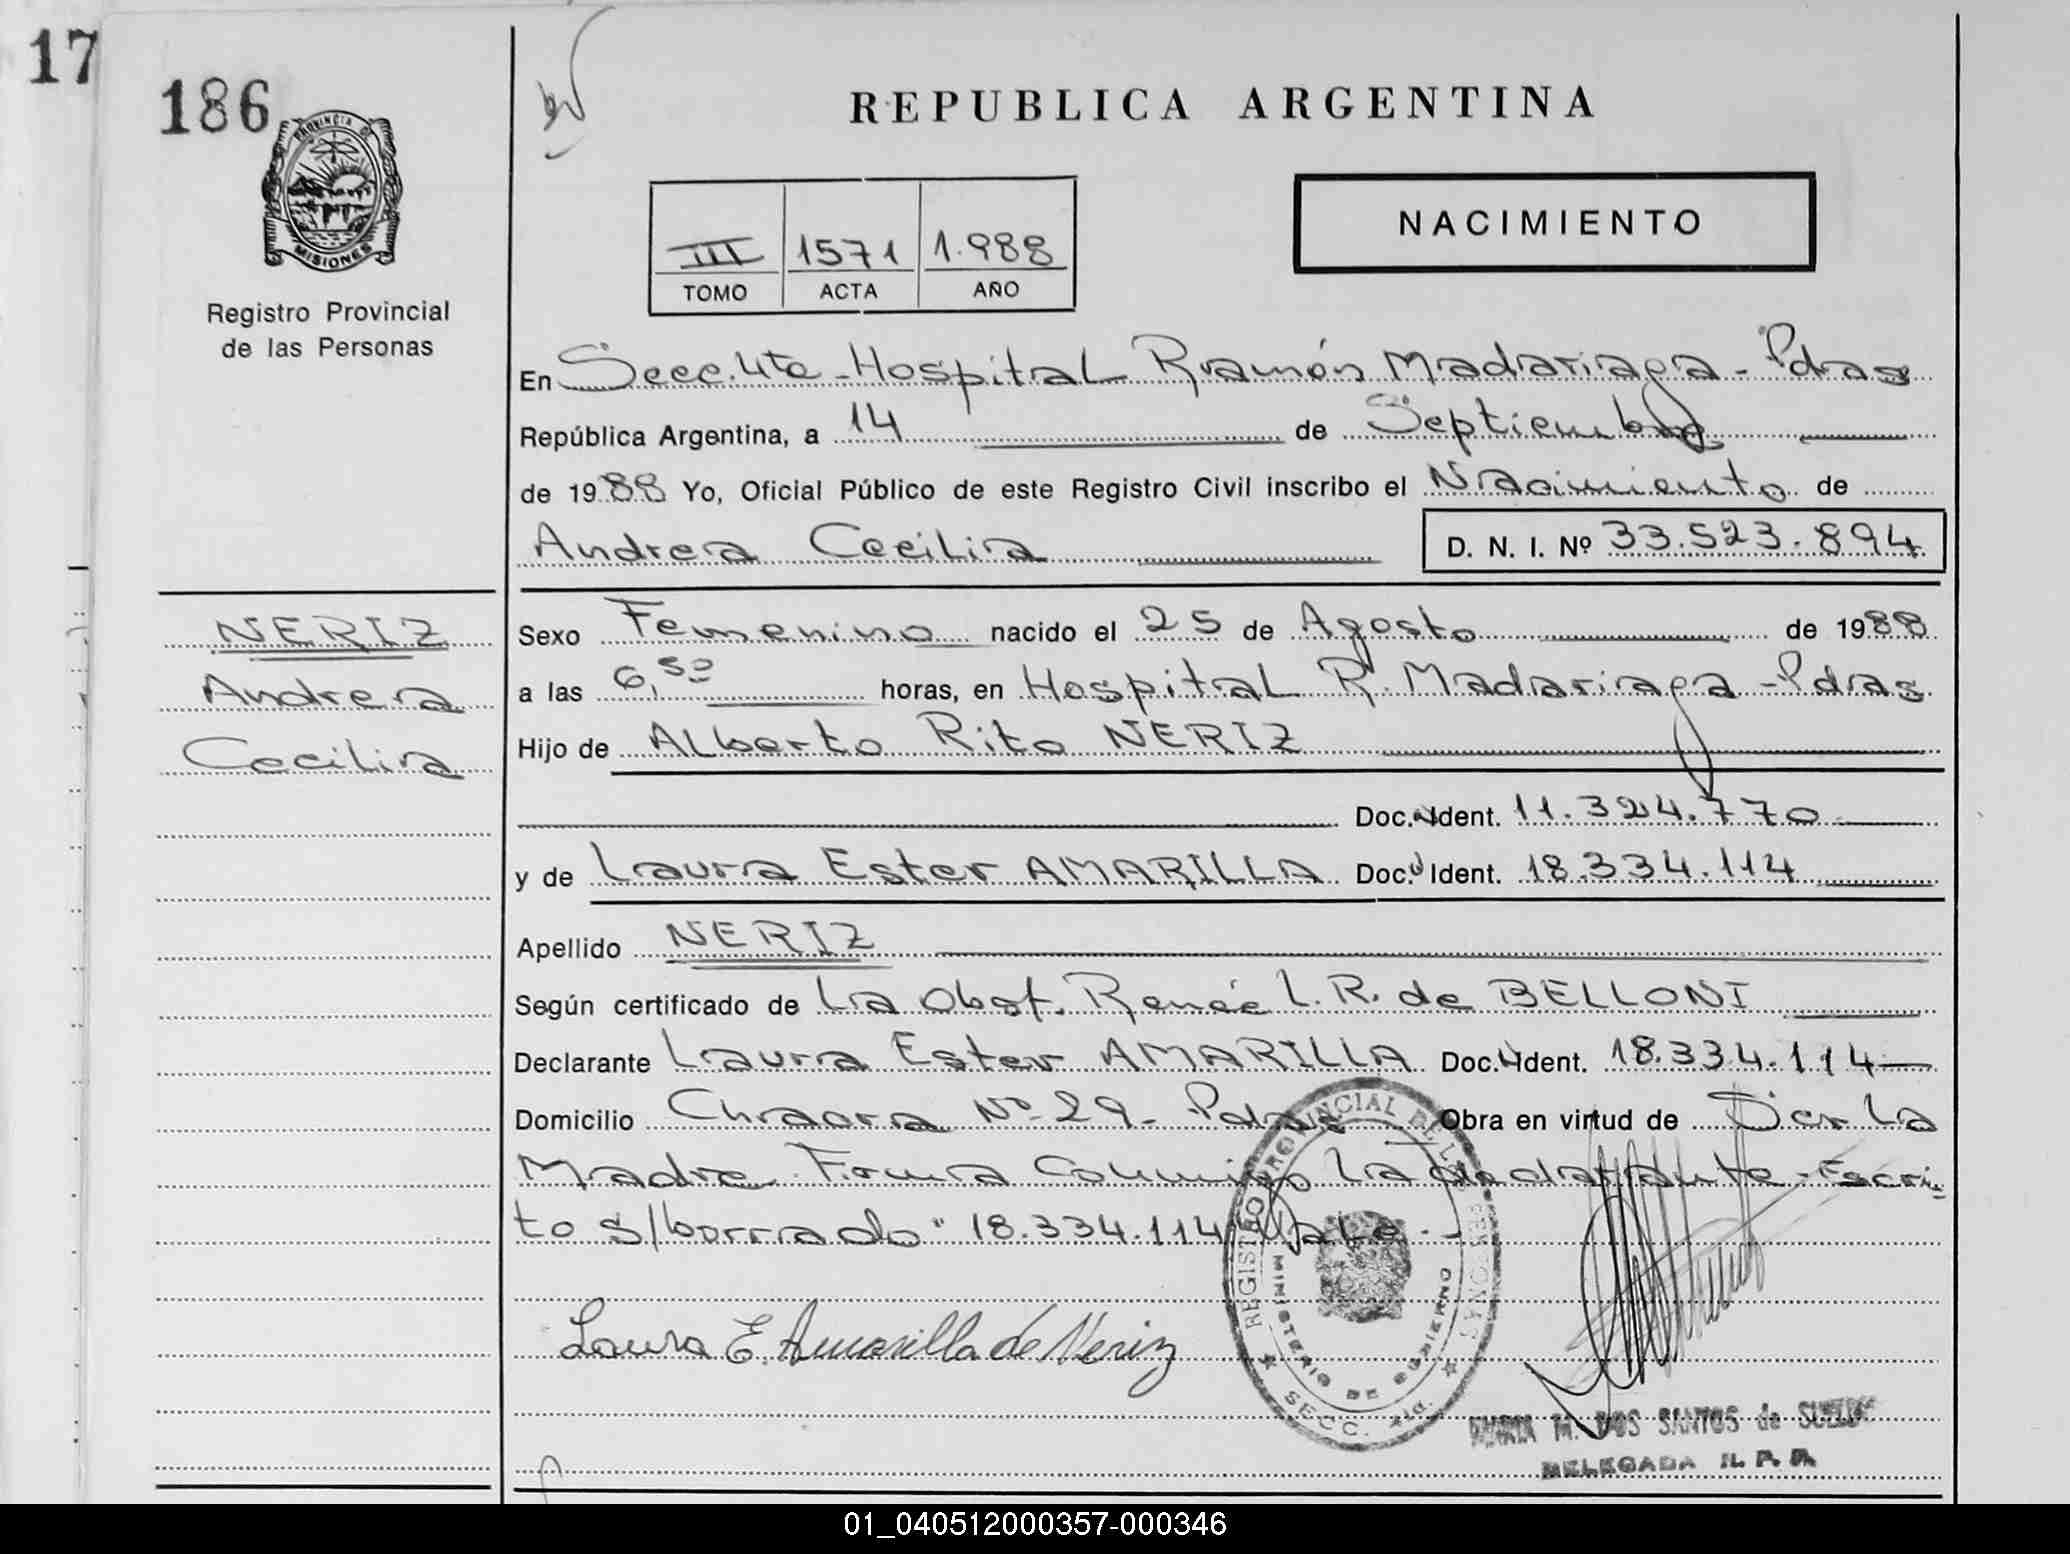 17
186
PROVINCIA DE
MISIONES
Registro Provincial
de las Personas
NERIZ
Andrea
Cecilia
REPUBLICA ARGENTINA
NACIMIENTO
III 1571 1.988
TOMO ACTA AÑO
En Secc. 4ta - Hospital Ramón Madariaga - Pdas
República Argentina, a 14 de Septiembre
de 1988 Yo, Oficial Público de este Registro Civil inscribo el Nacimiento de
Andrea Cecilia D. N. I. Nº 33.523.894
Sexo Femenino nacido el 25 de Agosto de 1988
a las 6,50 horas, en Hospital R. Madariaga - Pdas
Hijo de Alberto Rito NERIZ
Doc. Ident. 11.324.770
y de Laura Ester AMARILLA Doc. Ident. 18.334.114
Apellido NERIZ
Según certificado de La Obst. Renée L. R. de BELLONI
Declarante Laura Ester AMARILLA Doc. Ident. 18.334.114
Domicilio Chacra Nº 29 - Pdas Obra en virtud de Ser La
Madre. Firma Conmigo La declarante - Escri-
to s/borrado "18.334.114" Vale.-
Laura E. Amarilla de Neriz
REGISTRO PROVINCIAL DE LAS PERSONAS
MINISTERIO DE GOBIERNO
SECC. 4ta.
MARIA M. DOS SANTOS de
DELEGADA R. P. P.
01_040512000357-000346